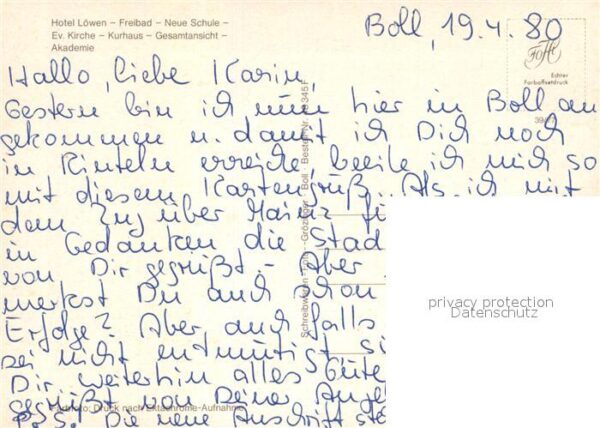 Hotel Löwen – Freibad – Neue Schule –
Ev. Kirche – Kurhaus – Gesamtansicht –
Akademie
Boll, 19.4.80
Echter
Farboffsetdruck
Hallo, liebe Karin,
Gestern bin ich nun hier in Boll an
gekommen u. damit ich Dich noch
in Rinteln erreiche, beeile ich mich so
mit diesem Kartengruß. Als ich mit
dem Zug über Mainz
in Gedanken die Stad
von Dir gegrüßt. – Aber
merkst Du auch schon
Erfolge? Aber auch falls
sei nicht entmutigt
Dir weiterhin alles Gute
gegrüßt von Deiner
P.S. Die neue Anschrift
privacy protection
Datenschutz
Druck nach Ektachrome-Aufnahme